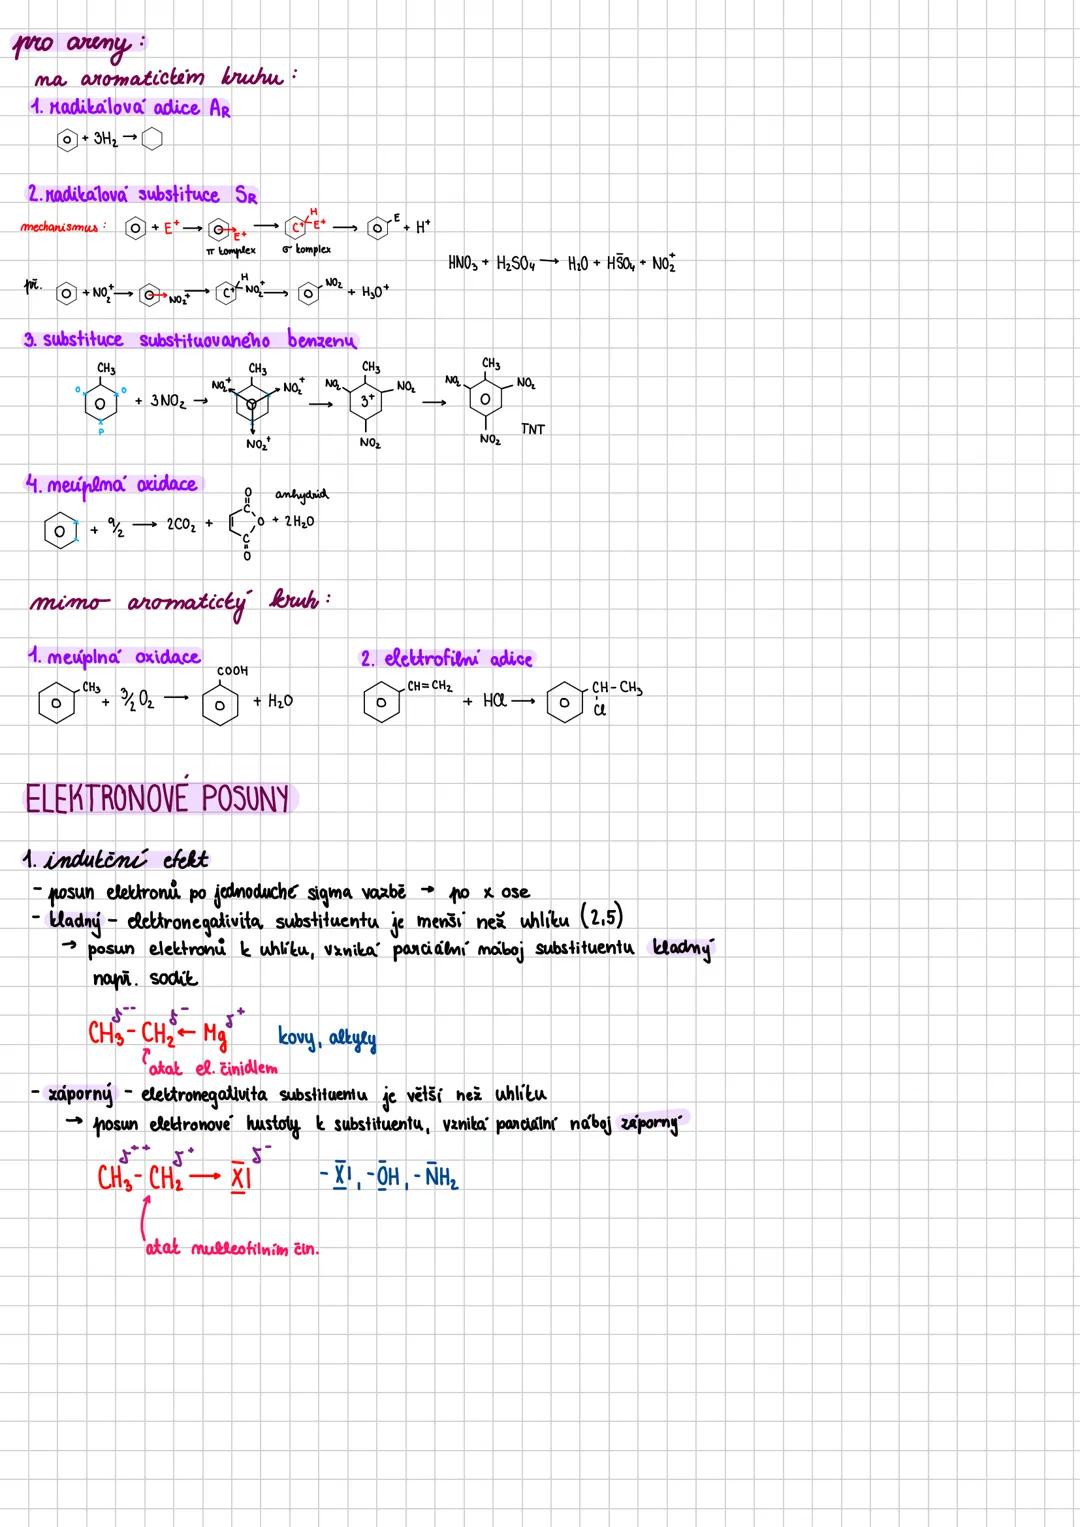 pro areny:
na aromatickém kruhu:
1. radikálová adice AR
+ 3H₂ →
2. radikálová substituce SR
mechanismus: + E⁺ → E⁺ → C⁺ H E⁺ → E + H⁺
π komplex σ komplex
HNO₃ + H₂SO₄ → H₂O + HSO₄ + NO₂⁺
př. + NO₂⁺ → NO₂⁺ → C⁺ H NO₂⁺ → NO₂ + H₃O⁺
3. substituce substituovaného benzenu
CH₃ CH₃ CH₃ CH₃
o o + 3NO₂ → NO₂⁺ NO₂⁺ → NO₂ 3⁺ NO₂ → NO₂ NO₂
p NO₂⁺ NO₂ NO₂ TNT
4. neúplná oxidace
anhydrid
+ 9/2 → 2CO₂ + O C O C O + 2H₂O
mimo aromatický kruh:
1. neúplná oxidace 2. elektrofilní adice
CH₃ + 3/2 O₂ → COOH + H₂O
CH=CH₂ + HCl → CH-CH₃
Cl
ELEKTRONOVÉ POSUNY
1. indukční efekt
- posun elektronů po jednoduché sigma vazbě → po x ose
- kladný - elektronegativita substituentu je menší než uhlíku (2,5)
→ posun elektronů k uhlíku, vzniká parciální náboj substituentu kladný
např. sodík
δ-- δ- δ+
CH₃-CH₂←Mg kovy, alkyly
atak el. činidlem
- záporný - elektronegativita substituentu je větší než uhlíku
→ posun elektronové hustoty k substituentu, vzniká parciální náboj záporný
δ++ δ+ δ-
CH₃-CH₂→X| -X|, -OH, -NH₂
atak nukleofilním čin.